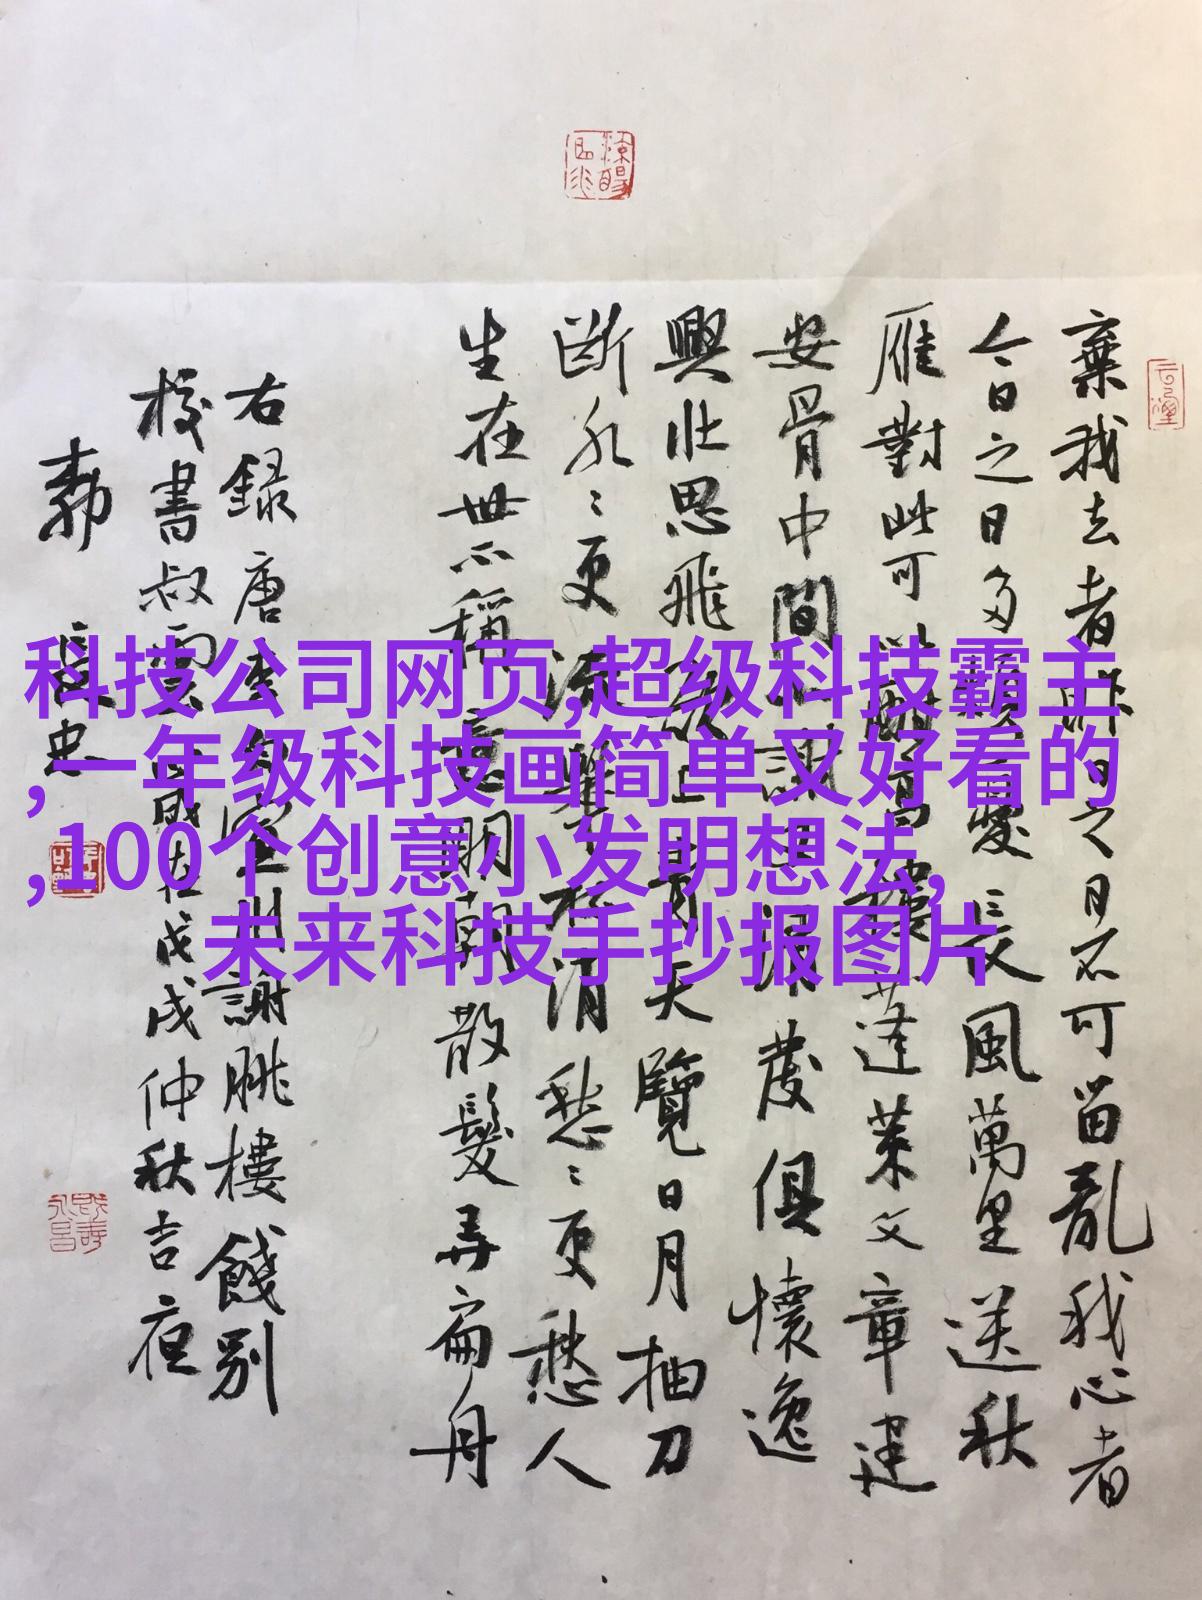 棄我去者昨日之日不可留亂我心者
今日之日多煩憂長風萬里送秋
雁對此可以酣高樓蓬萊文章建
安骨中間小謝又清發俱懷逸
興壯思飛欲上青天覽日月抽刀
斷水々更流舉杯消愁々更愁人
生在世不稱意明朝散髮弄扁舟
右録唐李白宣州謝朓樓餞別
校書叔雲 歲在戊戌仲秋吉夜
科技公司网页,超级科技霸主
,一年级科技画简单又好看的
,100个创意小发明想法,
未来科技手抄报图片